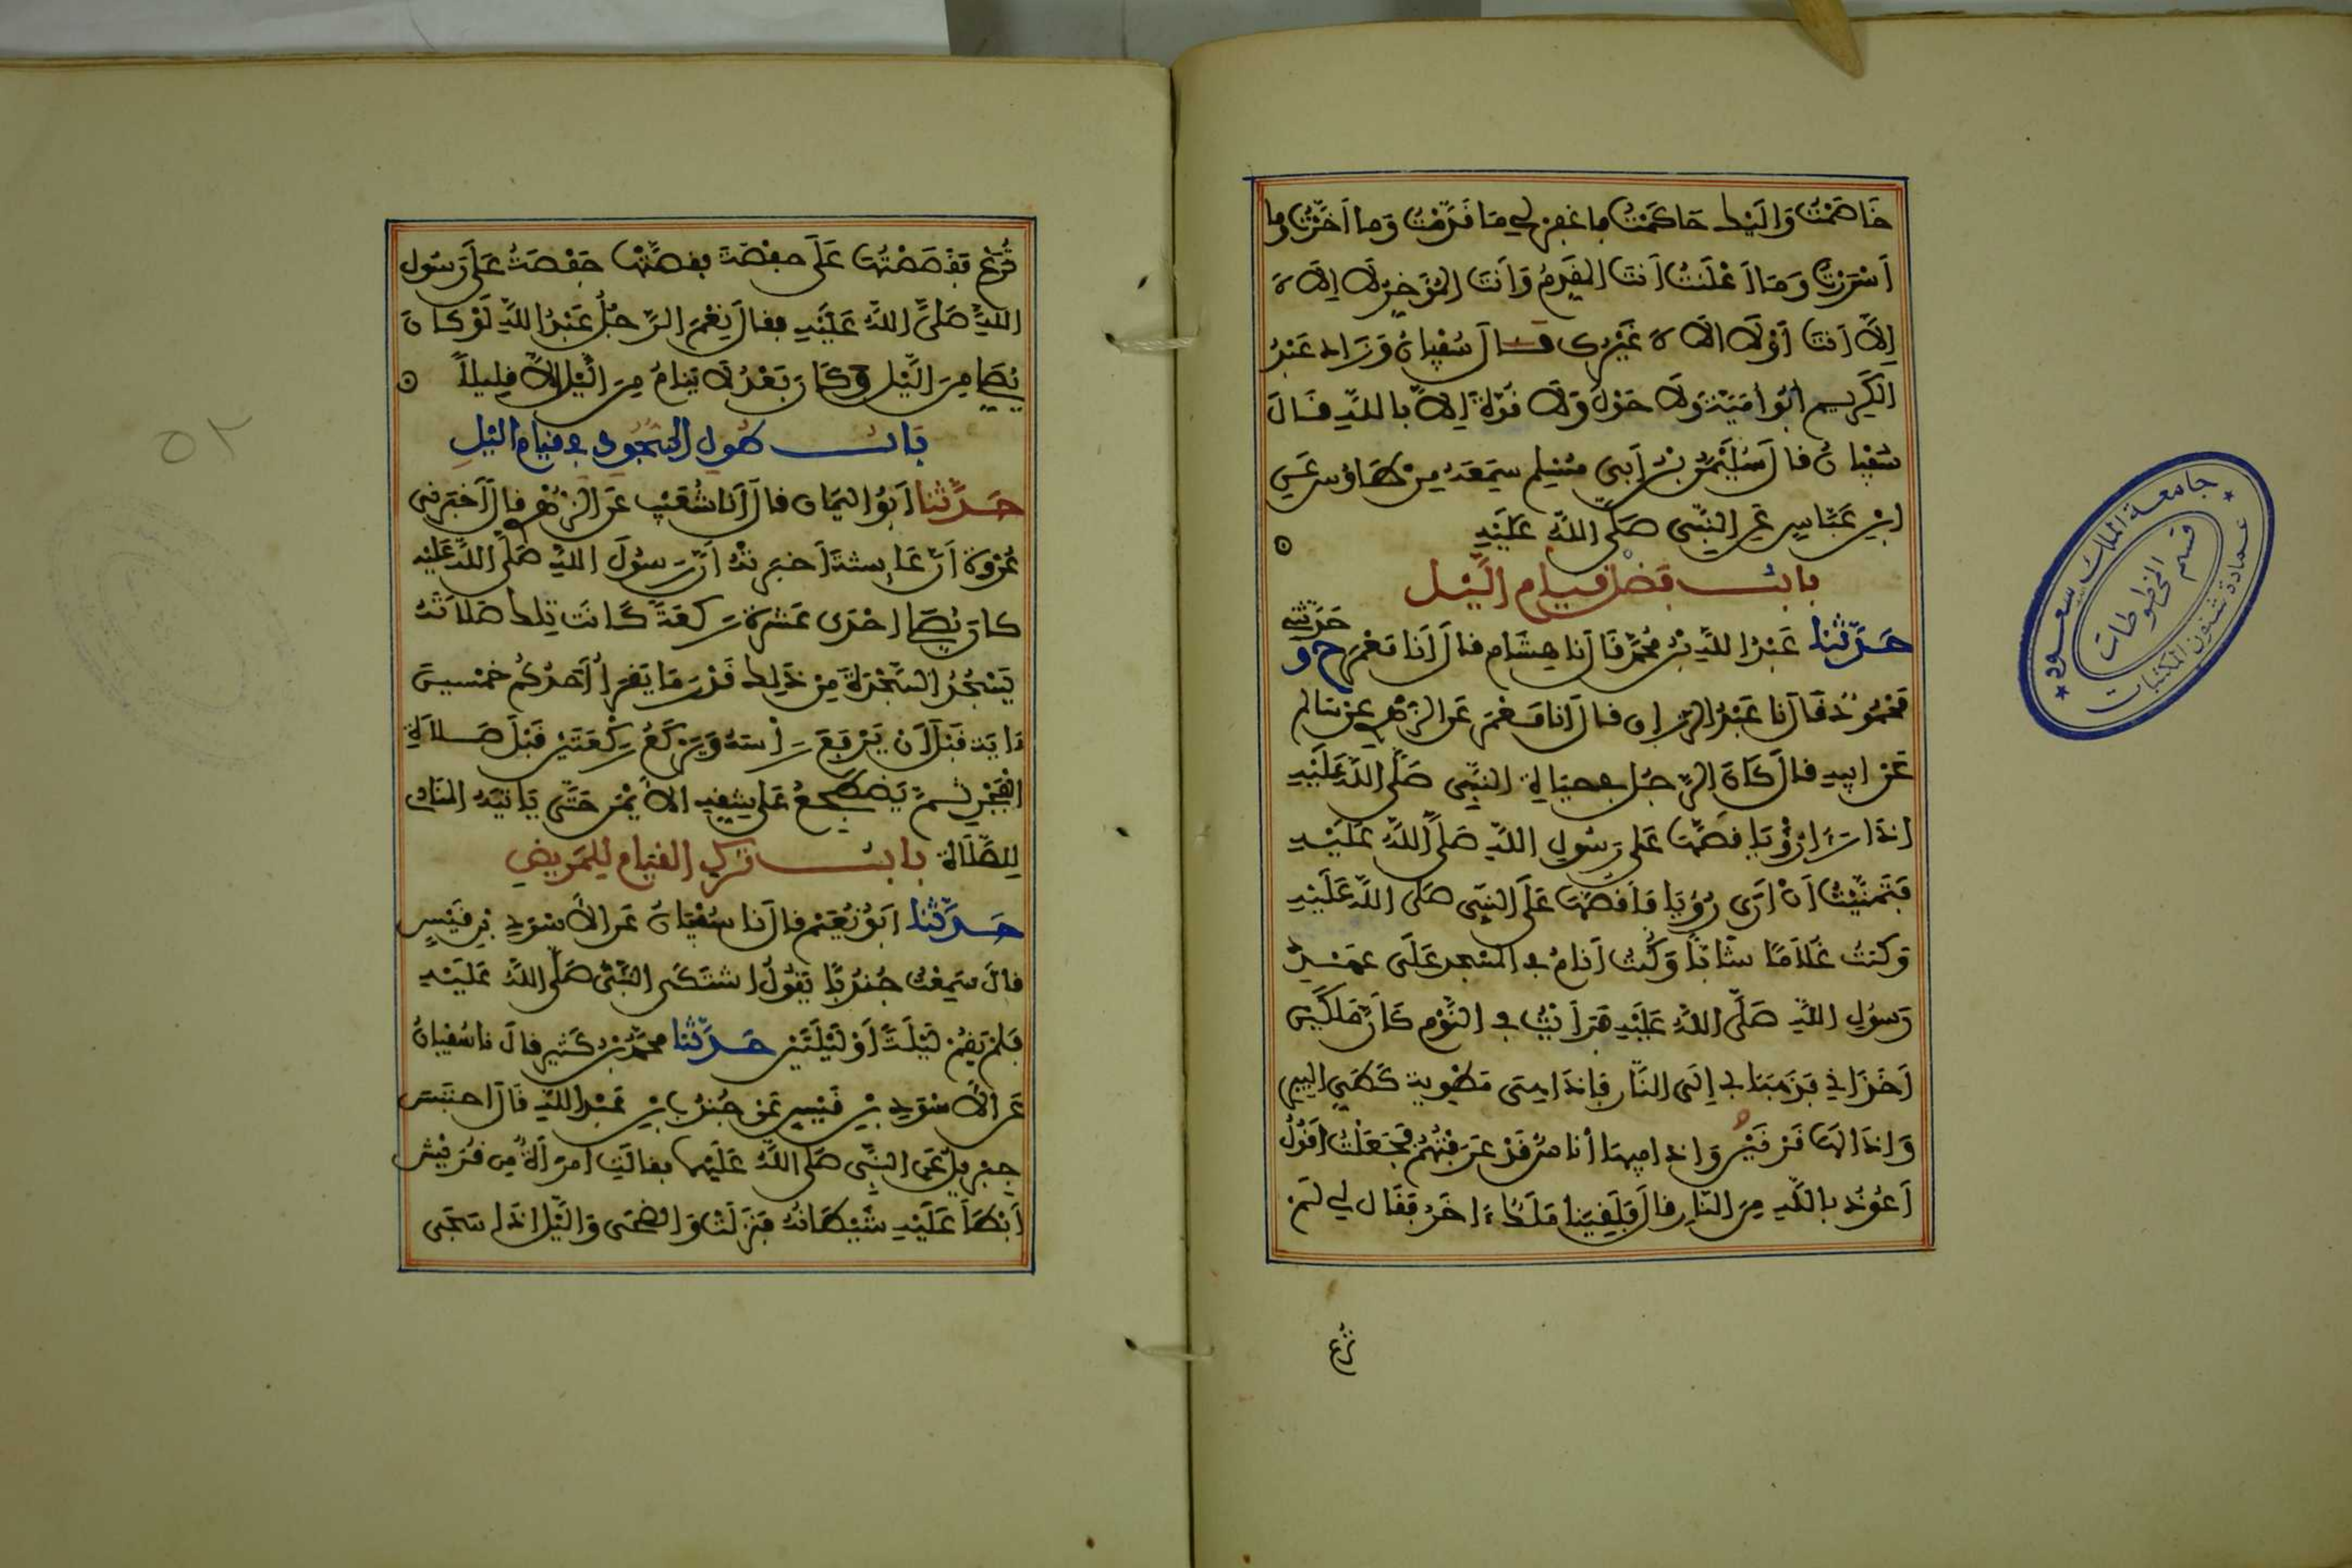 خَاصَمْتُ وَإلَيْكَ حَاكَمْتُ فاغفِر لي مَا قَدَّمْتُ وَما أخَّرْتُ وما
أسْرَرْتُ وَمَا أعْلَنْتُ أنتَ المُقَدِّمُ وَأنتَ المُؤَخِّرُ لَا إلَاهَ
إلَّا أنتَ أوْ لَا الَاهَ غَيْرُك قال سُفْيانُ وَزَادَ عَبْدُ
الكَرِيم أبُو أمَيَّةَ وَلَا حَوْلَ وَلَا قُوَّةَ إلَّا باللَّهِ قَالَ
سُفْيانُ قالَ سُلَيْمَنُ بْنُ أبِي مُسْلِم سَمِعَهُ مِنْ طَاوُسٍ عَنِ
ابْنِ عَبَّاسٍ عَنِ النَّبِي صَلَّى اللَّهُ عَلَيْهِ
بابُ فَضْلِ قِيامِ الَّيْلِ
حَدَّثَنَا عَبْدُ اللَّهِ بْنُ مُحَمَّدٍ قَالَ نَا هِشَام قالَ أنَا مَعْمَر ح و حَدَّثَنِي
مَحْمُودٌ قَالَ نَا عَبْدُ الرَّزاق قالَ أنا مَعْمَر عَنِ الزُّهْرِي عَنْ سَالِم
عَنْ ابِيهِ قالَ كَانَ الرَّجُلُ في حَيَاةِ النَّبِي صَلَّى اللَّهُ عَلَيْهِ
اذَا رَءَا رُؤْيَا قصَّهَا عَلَى رَسُولِ اللَّهِ صَلَّى اللَّهُ عَلَيْهِ
فَتَمَنَّيْتُ أنْ أرَى رُؤْيَا فَأقصّهَا عَلَى النَّبِي صَلَّى اللَّهُ عَلَيْهِ
وَكُنتُ غُلَامًا شَابًّا وَكُنتُ أنَامُ في المَسْجِدِ عَلَى عَهْدِ
رَسُولِ اللَّهِ صَلَّى اللَّهُ عَلَيْهِ فَرَأيْتُ في النَّوْمِ كَأنَّ مَلَكَيْنِ
أخَذَاني فَذَهَبَا بي إلَى النَّار فَإذَا هِيَ مَطْوِية كَطَيِّ البِير
وَاذَا لَهَا قَرْنَيْنِ وَاذا فِيهَا أنَاسٌ قَدْ عَرَفْتُهُمْ فَجَعَلْتُ أقُولُ
أعُوذُ باللَّهِ مِنَ النَّارِ قالَ فَلَقِيَنَا مَلَكٌ ءاخَرُ فَقَالَ لِي لَمْ
تُرَعْ
تُرَعْ فَقَصَصْتُهَا عَلَى حَفْصَةَ فقصَّتْهَا حَفْصَةُ عَلَى رَسُولِ
اللَّهِ صَلَّى اللَّهُ عَلَيْهِ فقالَ نِعْمَ الرَّجُلُ عَبْدُ اللَّهِ لَوْ كَانَ
يُصَلي مِنَ الَّيْلِ وَكَانَ بَعْدُ لَا يَنَامُ مِنَ الَّيْلِ إلَّا قلِيلًا
بَابُ طُولِ السُّجُودِ في قيامِ الَيْلِ
حَدَّثَنَا أبُو اليَمَان قالَ أنا شُعَيْب عَنِ الزُّهْرِي قالَ أخْبَرَنِي
عُرْوَة أنَّ عَائِشَةَ أخْبَرَتْهُ أنَّ رَسُولَ اللَّهِ صَلَّى اللَّهُ عَلَيْهِ
كانَ يُصَلي احْدَى عَشْرَةَ رَكْعَةً كَانَت تِلكَ صَلَاتَهُ
يَسْجُدُ السَّجْدَةَ مِنْ ذَلِكَ قَدْرَ مَا يَقْرَأُ أحَدُكُمْ خَمْسِينَ
ءايَة قَبْلَ أنْ يَرْفَعَ رَأسَهُ وَيَرْكَعُ رَكْعَتَيْنِ قَبْلَ صَلَاةِ
الفَجْرِ ثُمَّ يَضْطَجِعُ عَلَى شِقِّهِ الأيْمَنِ حَتَّى يَاتِيَهُ المُنَادِي
لِلصَّلَاةِ بابُ تَرْكِ القِيَامِ لِلمَرِيضِ
حَدَّثَنَا أبُو نُعَيْم قالَ نَا سُفْيَانُ عَنِ الأسْوَدِ بْنِ قَيْسٍ
قالَ سَمِعْتُ جُنْدُبًا يَقُولُ اشْتَكَى النَّبِي صَلَّى اللَّهُ عَلَيْهِ
فَلَمْ يَقُمْ لَيْلَةً أوْ لَيْلَتَيْنِ حَدَّثَنَا محَمَّدُ بْنُ كَثِيرٍ قالَ نا سُفْيانُ
عَنِ الأسْوَدِ بْنِ قَيْسٍ عَنْ جُنْدُبِ بْنِ عَبْدِ اللَّهِ قَالَ احْتَبَسَ
جِبْرِيلُ عَنِ النَّبِي صَلَّى اللَّهُ عَلَيْهِمَا فقالَتِ امْرَأةٌ مِن قُرَيْش
أبْطَأ عَلَيْهِ شَيْطَانُهُ فَنَزَلَتْ وَالضُّحَى وَالَّيْلِ إذَا سَجَى
٥٢
جامعة الملك سعود
قسم المخطوطات
عمادة شئون المكتبات